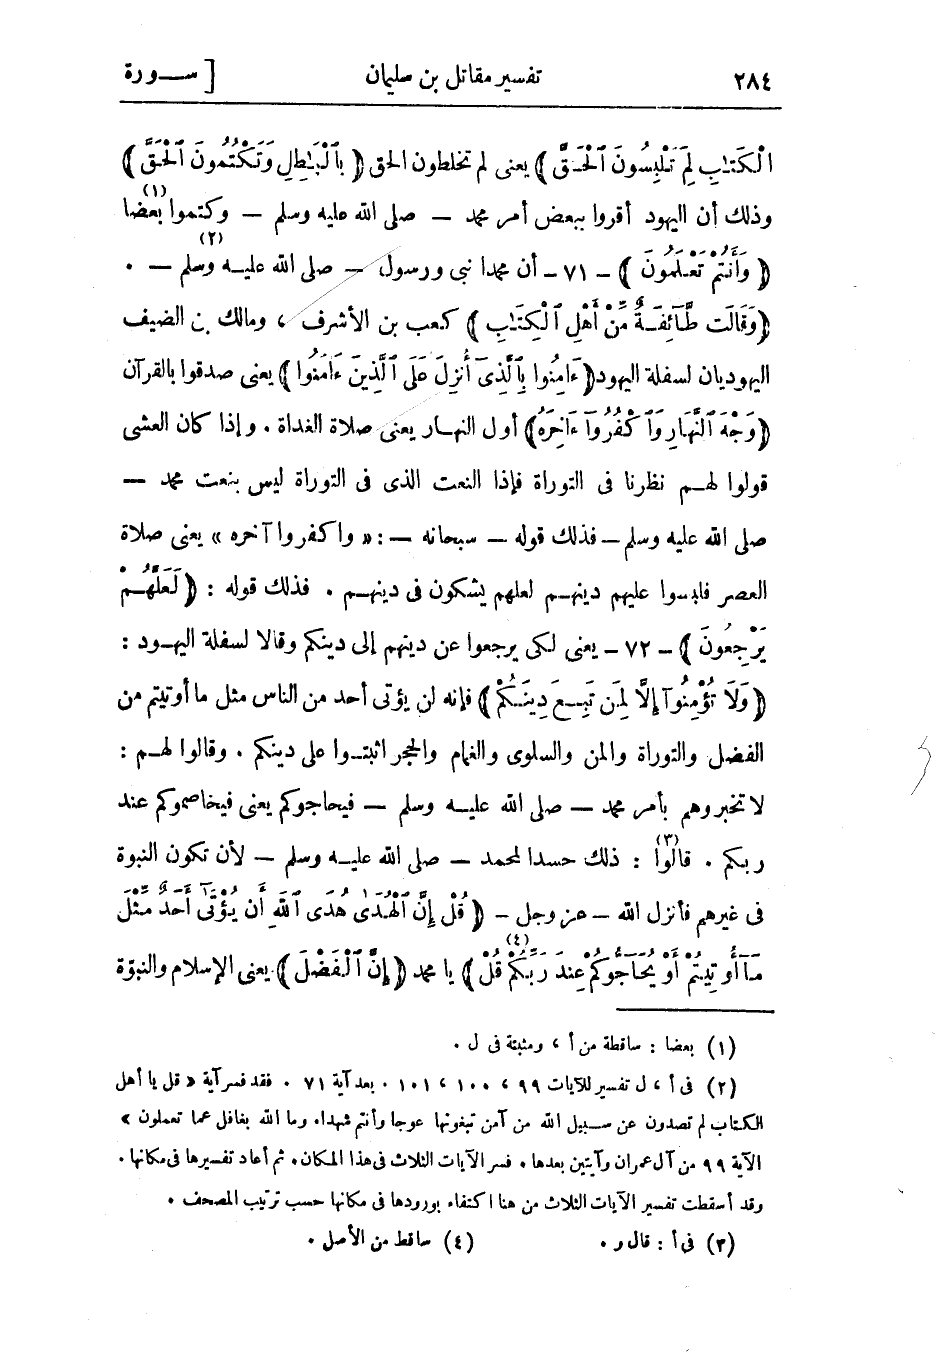 ٢٨٤ تفسير مقاتل بن سليمان [ ســورة
الْكَتَٰبِ لِمَ تَلْبِسُونَ ٱلْحَقَّ ﴾ يعنى لم تخلطون الحق ﴿ بِٱلْبَٰطِلِ وَتَكْتُمُونَ ٱلْحَقَّ ﴾
وذلك أن اليهود أقروا ببعض أمر محمد — صلى الله عليه وسلم — وكتموا بعضا (١)
﴿ وَأَنتُمْ تَعْلَمُونَ ﴾ - ٧١ - أن محمدا نبى ورسول — صلى الله عليه وسلم — (٢) .
﴿وَقَالَت طَّآئِفَةٌ مِّنْ أَهْلِ ٱلْكِتَٰبِ ﴾ كعب بن الأشرف ، ومالك بن الضيف
اليهوديان لسفلة اليهود ﴿ ءَامِنُوا بِٱلَّذِىٓ أُنزِلَ عَلَى ٱلَّذِينَ ءَامَنُوا ﴾ يعنى صدقوا بالقرآن
﴿وَجْهَ ٱلنَّهَارِ وَٱكْفُرُوٓا ءَاخِرَهُ﴾ أول النهار يعنى صلاة الغداة . وإذا كان العشى
قولوا لهم نظرنا فى التوراة فإذا النعت الذى فى التوراة ليس بنعت محمد —
صلى الله عليه وسلم — فذلك قوله — سبحانه — : « واكفروا آخره » يعنى صلاة
العصر فلبسوا عليهم دينهم لعلهم يشكون فى دينهم . فذلك قوله : ﴿ لَعَلَّهُمْ
يَرْجِعُونَ ﴾ - ٧٢ - يعنى لكى يرجعوا عن دينهم إلى دينكم وقالا لسفلة اليهود :
﴿ وَلَا تُؤْمِنُوٓا إِلَّا لِمَن تَبِعَ دِينَكُمْ ﴾ فإنه لن يؤتى أحد من الناس مثل ما أوتيتم من
الفضل والتوراة والمن والسلوى والغمام والحجر اثبتوا على دينكم . وقالوا لهم :
لا تخبروهم بأمر محمد — صلى الله عليه وسلم — فيحاجوكم يعنى فيخاصموكم عند
ربكم . قالوا (٣) : ذلك حسدا لمحمد — صلى الله عليه وسلم — لأن تكون النبوة
فى غيرهم فأنزل الله — عز وجل — ﴿ قُلْ إِنَّ ٱلْهُدَىٰ هُدَى ٱللَّهِ أَن يُؤْتَىٰٓ أَحَدٌ مِّثْلَ
مَآ أُوتِيتُمْ أَوْ يُحَآجُّوكُمْ عِندَ رَبِّكُمْ (٤) قُلْ ﴾ يا محمد ﴿ إِنَّ ٱلْفَضْلَ ﴾ يعنى الإسلام والنبوّة
(١) بعضا : ساقطة من أ ، ومثبتة فى ل .
(٢) فى أ ، ل تفسير للآيات ٩٩ ، ١٠٠ ، ١٠١ . بعد آية ٧١ . فقد فسر آية « قل يا أهل
الكتاب لم تصدون عن سبيل الله من آمن تبغونها عوجا وأنتم شهداء وما الله بغافل عما تعملون »
الآية ٩٩ من آل عمران وآيتين بعدها . فسر الآيات الثلاث فى هذا المكان . ثم أعاد تفسيرها فى مكانها .
وقد أسقطت تفسير الآيات الثلاث من هنا اكتفاء بورودها فى مكانها حسب ترتيب المصحف .
(٣) فى أ : قال و . (٤) ساقط من الأصل .